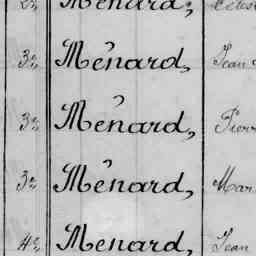 2º Ménard,
3º Ménard, Jean
3º Ménard, Pierr
3º Ménard, Mar
4º Ménard, Jean